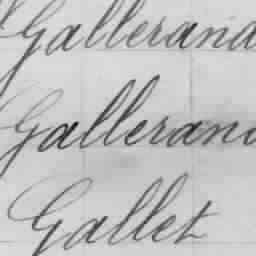 Gallerand
Galleran
Gallet